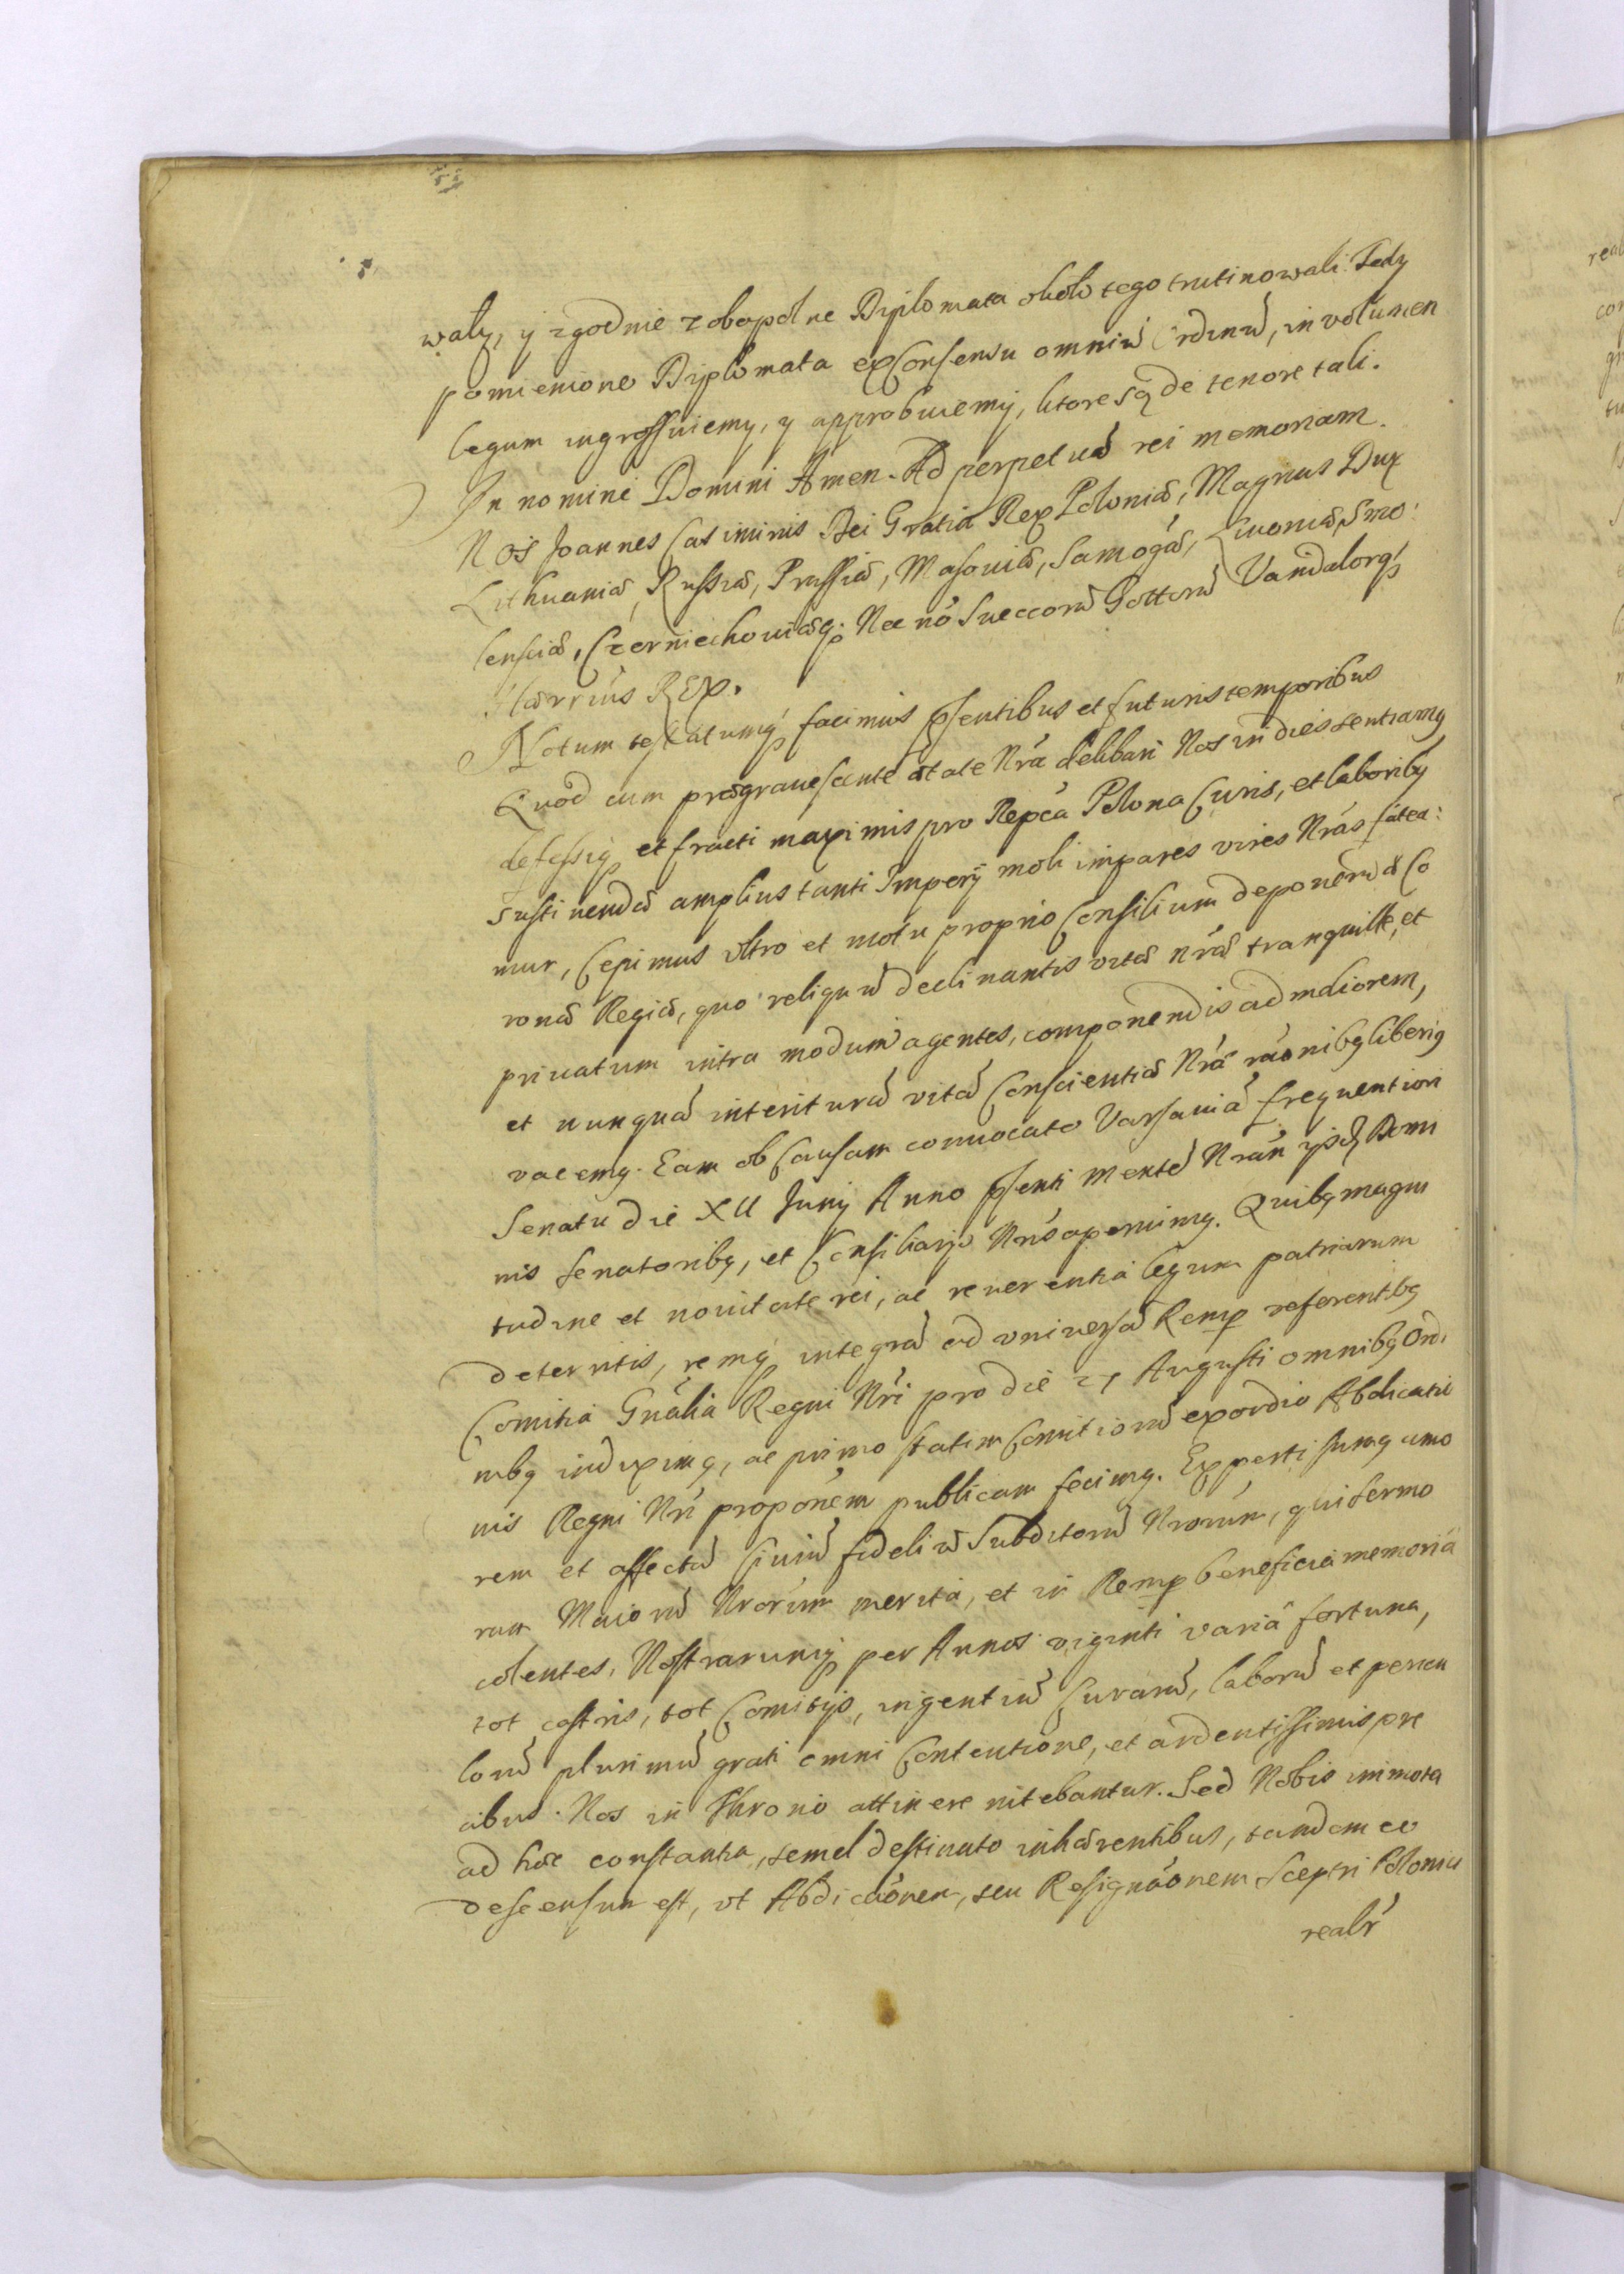 wały, y zgodnie z obopolne Diplomata około tego trutinowali. Tedy
pomienione Diplomata ex Consensu omniū Ordinū, in volumen
legum ingrossuiemy, y approbuiemy, ktore są de tenore tali.
In nomine Domini Amen. Ad perpetuā rei memoriam.
Nos Joannes Casimirus Dei Gratia Rex Poloniæ, Magnus Dux
Lithuaniæ, Russiæ, Prussiæ, Masouiæ, Samog̃æ, Liuoniæ, Smo:
lensciæ, Czerniechouiæq; Nec nō Sueccorū Gottorū Vandalorq́
Hærrius REX.
Notum testatumq́ facimus p̃sentibus et futuris temporibus
Quod cum prægrauescente ætate Nrã delibari Nos in dies sentiamq
defessiq et fracti maximis pro Repcã Polona Curis, et laboribq
sustinendæ amplius tanti Imperÿ moli impares vires Nrãs fatea:
mur, Cepimus vltro et motu proprio Consilium deponendæ Co
ronæ Regiæ, quo reliquū declinantis vitæ nrãæ tranquille, et
priuatum intra modum agentes, componendis ad meliorem,
et nunquā interiturā vitā Conscientiæ Nrã rãonibq liberiq
vacemq. Eam ob Causam conuocato Varsauiā frequentiori
Senatu die XII Junÿ Anno p̃senti mentē Nrãm ÿsdē Dom
nis Senatoribq, et Consiliarÿs Nrĩs aperuimq. Quibq magni
tudine et nouitate rei, ac reuerentia legum patriarum
deterritis, remq́ integrā ad vniuersā Remp referentibq
Comitia Gnãlia Regni Nrĩ pro die 27 Augusti omnibq Ordi
nibq indiximq, ac primo statim Comitiorū exordio Abdicatio
nis Regni Nrĩ propõnem publicam fecimq. Experti sumq amo
rem et affectū Ciuiū fideliū Subditorū Nrorũm, qui fermo
rum Maiorū Nrorũm merita, et in Remp beneficia memoriā
colentes, Nostrarumq́ per Annos viginti varia fortuna,
tot castris, tot Comitÿs, ingentiū Curarū, laborū et pericu
lorū plurimū grati omni Contentione, et ardentissimis pre
cibus. Nos in throno attinere nitebantur. Sed Nobis immota
ad hæc constantia, semel destinato inhærentibus, tandem eo
descensum est, vt Abdicãonem, seu Resignãonem Sceptri Polonici
realr̃